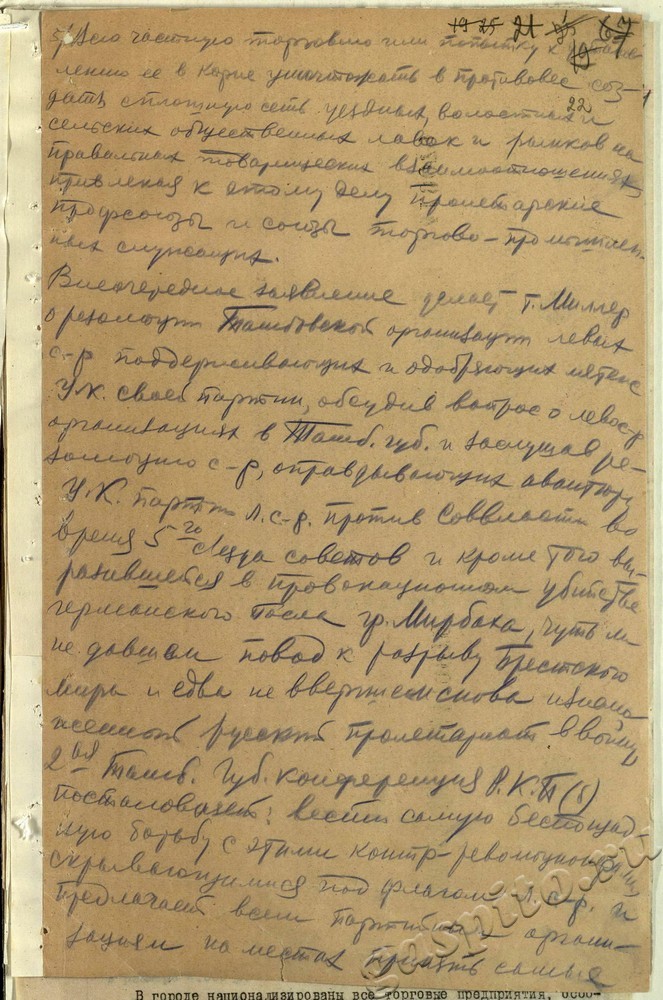 19 25 21 25 67
19
5) Всю частную торговлю или попытку к
лению ее в корне уничтожать в противовес соз-
22
дать сплошную сеть уездных, волостных и
сельских общественных лавок и рынков на
правильных товарищеских взаимоотношениях,
привлекая к этому делу пролетарские
профсоюзы и союзы торгово-промышлен-
ных служащих.
Внеочередное заявление делает т. Миллер
о резолюции Тамбовской организации левых
с-р поддерживающих и одобряющих мятеж
Ц.К. своей партии, обсудив вопрос о левос-р
организациях в Тамб. губ. и заслушав ре-
золюцию с-р, оправдывающих авантюру
Ц.К. партии л.с-р. против Соввласти во
время 5го съезда советов и кроме того вы-
разившейся в провокационном убийстве
германского посла гр. Мирбаха, чуть ли
не давшем повод к разрыву Брестского
мира и едва не ввергшем снова изнемо
женный русский пролетариат в войну
2ая Тамб. Губ. конференция Р.К.П(б)
постановляет: вести самую беспощад-
ную борьбу с этими контр-революционерами
скрывающимися под флагом л.с-р. и
предлагает всем партийным органи-
зациям на местах принять самые
gaspito.ru
В городе национализированы все торговые предприятия, особо-